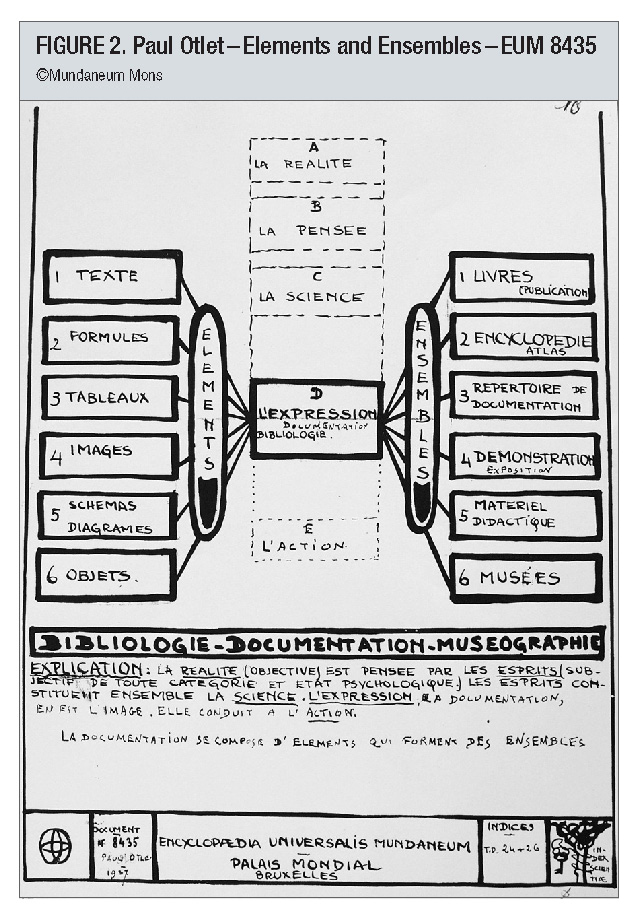 FIGURE 2. Paul Otlet–Elements and Ensembles–EUM 8435
©Mundaneum Mons
A
LA REALITE
B
LA PENSEE
C
LA SCIENCE
D
L'EXPRESSION
DOCUMENTATION
BIBLIOLOGIE.
E
L'ACTION
ELEMENTS
1 TEXTE
2 FORMULES
3 TABLEAUX
4 IMAGES
5 SCHEMAS
DIAGRAMES
6 OBJETS.
ENSEMBLES
1 LIVRES
(PUBLICATION
2 ENCYCLOPEDIE
ATLAS
3 REPERTOIRE DE
DOCUMENTATION
4 DEMONSTRATION
EXPOSITION
5 MATERIEL
DIDACTIQUE
6 MUSÉES
BIBLIOLOGIE-DOCUMENTATION-MUSEOGRAPHIE
EXPLICATION: LA REALITE (OBJECTIVE) EST PENSEE PAR LES ESPRITS (SUB-
JECTIF DE TOUTE CATEGORIE ET ETAT PSYCHOLOGIQUE,) LES ESPRITS CON-
STITUENT ENSEMBLE LA SCIENCE. L'EXPRESSION, LA DOCUMENTATION,
EN EST L'IMAGE. ELLE CONDUIT A L'ACTION.
LA DOCUMENTATION SE COMPOSE D'ELEMENTS QUI FORMENT DES ENSEMBLES
DOCUMENT
N° 8435
PAUL OTLET
1937
ENCYCLOPÆDIA UNIVERSALIS MUNDANEUM
PALAIS MONDIAL
BRUXELLES
INDICES
T.D. 24+26